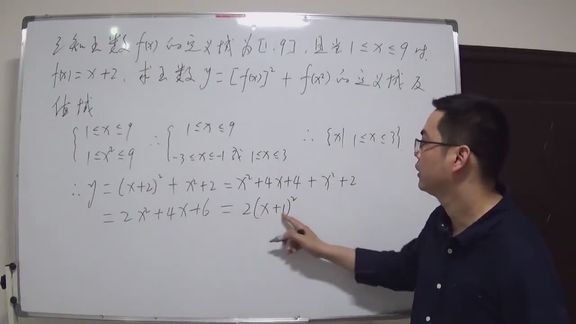 已知函数 f(x) 的定义域为[1,9], 且当 1≤x≤9 时,
f(x)=x+2. 求函数 y=[f(x)]²+f(x²) 的定义域及
值域
{ 1≤x≤9 ∴ { 1≤x≤9 ∴ {x| 1≤x≤3}
1≤x²≤9 -3≤x≤-1 或 1≤x≤3
∴ y=(x+2)²+x²+2=x²+4x+4+x²+2
=2x²+4x+6 =2(x+1)²